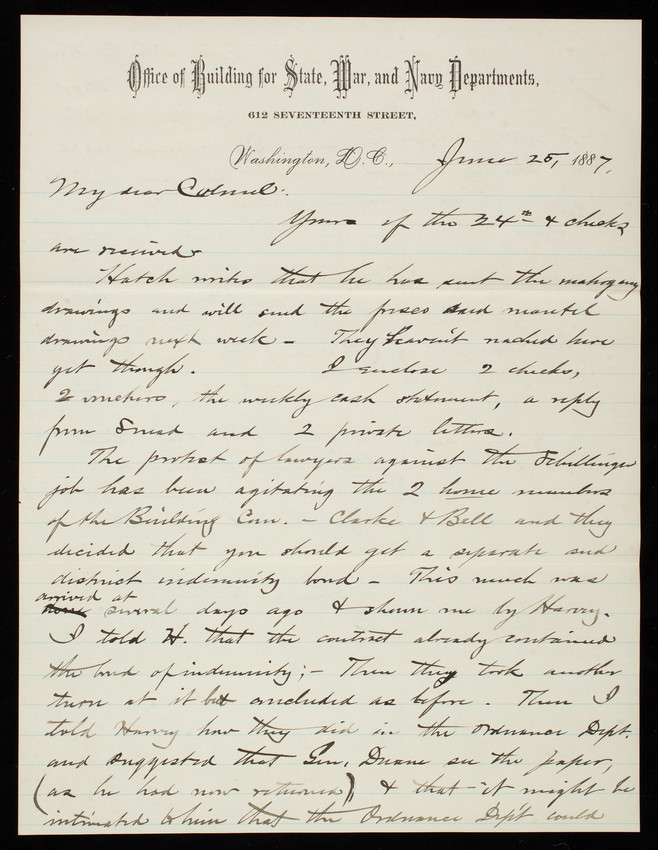 Office of Building for State, War, and Navy Departments,
612 SEVENTEENTH STREET,
Washington, D.C., June 25, 1887.
My dear Colonel:
Yours of the 24th & checks
are received.
Hatch writes that he has sent the mahogany
drawings and will send the and mantel
drawings next week – They haven't reached here
yet though. I enclose 2 checks,
2 vouchers, the weekly cash statement, a reply
from Snead and 2 private letters.
The protest of lawyers against the Schillinger
job has been agitating the 2 home members
of the Building Com. – Clarke & Bell and they
decided that you should get a separate and
distinct indemnity bond – This much was
arrived at
several days ago & shown me by Harvey.
I told H. that the contract already contained
the bond of indemnity; – Then they took another
turn at it but concluded as before. Then I
told Harvey how they did in the Ordnance Dept.
and suggested that Gen. Duane see the paper,
(as he had now returned) & that it might be
intimated to him that the Ordnance Dep't could